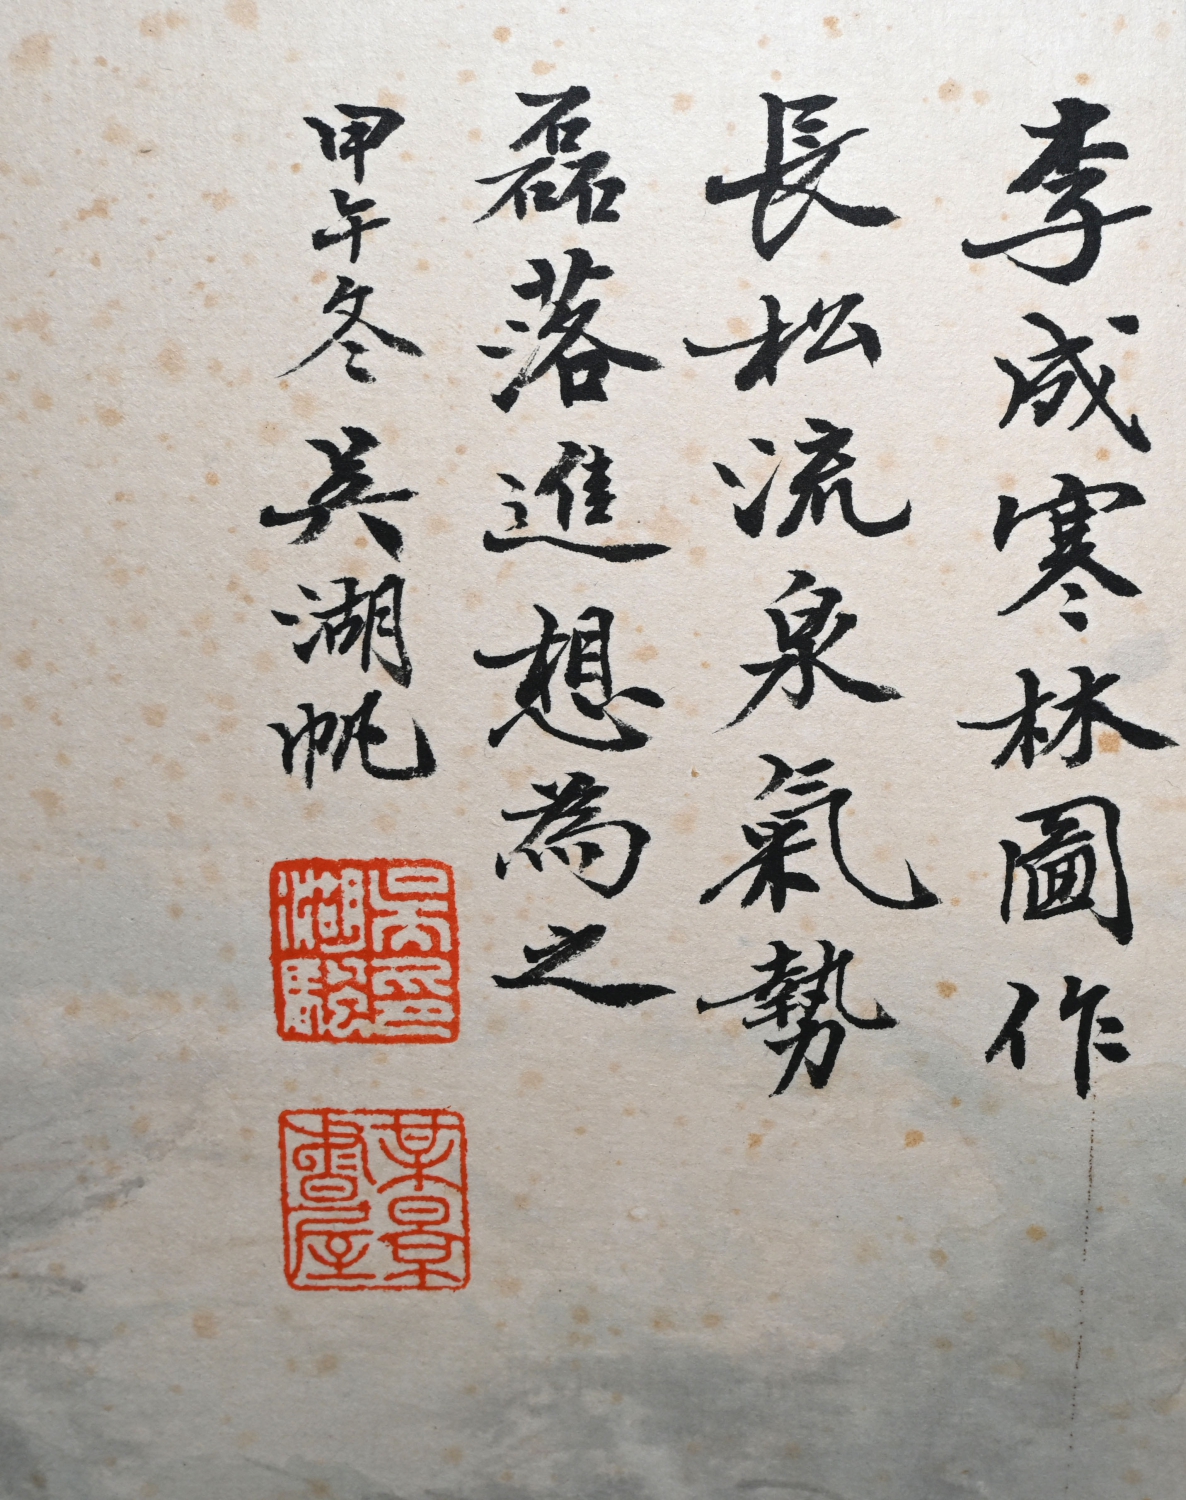 李成寒林圖作
長松流泉氣勢
磊落進想為之
甲午冬吳湖帆
吳湖颿印
某景書屋